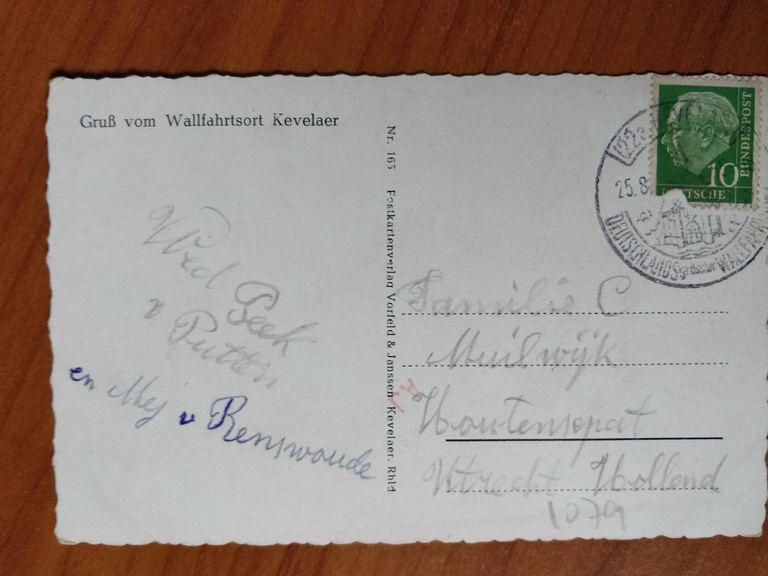 Gruß vom Wallfahrtsort Kevelaer
Wed Beek
v Putten
en Mej v Renswoude
Nr. 165 Postkartenverlag Vorfeld & Janssen Kevelaer. Rhld
10
BUNDESPOST
DEUTSCHE
(22a)
25.8
DEUTSCHLANDS grösster WALLFAHR
Familie C
Muilwijk
Houtenspat
Utrecht Holland
1079